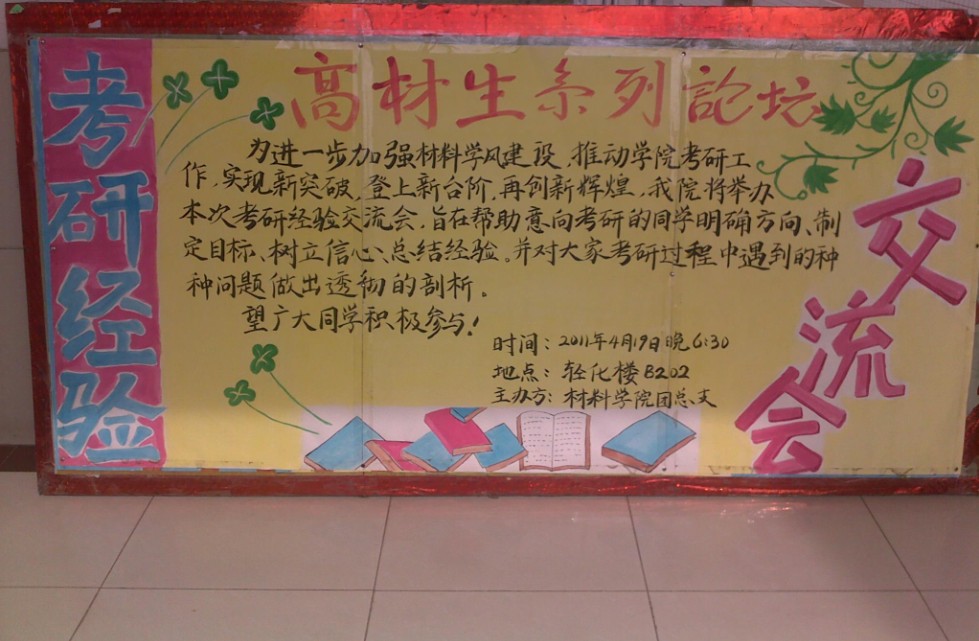 考研经验
高材生系列論坛
为进一步加强材料学风建设,推动学院考研工
作,实现新突破,登上新台阶,再创新辉煌,我院将举办
本次考研经验交流会,旨在帮助意向考研的同学明确方向、制
定目标、树立信心、总结经验。并对大家考研过程中遇到的种
种问题做出透彻的剖析。
望广大同学积极参与!
时间:2011年4月19日晚6:30
地点:轻化楼B202
主办方:材料学院团总支
交流会